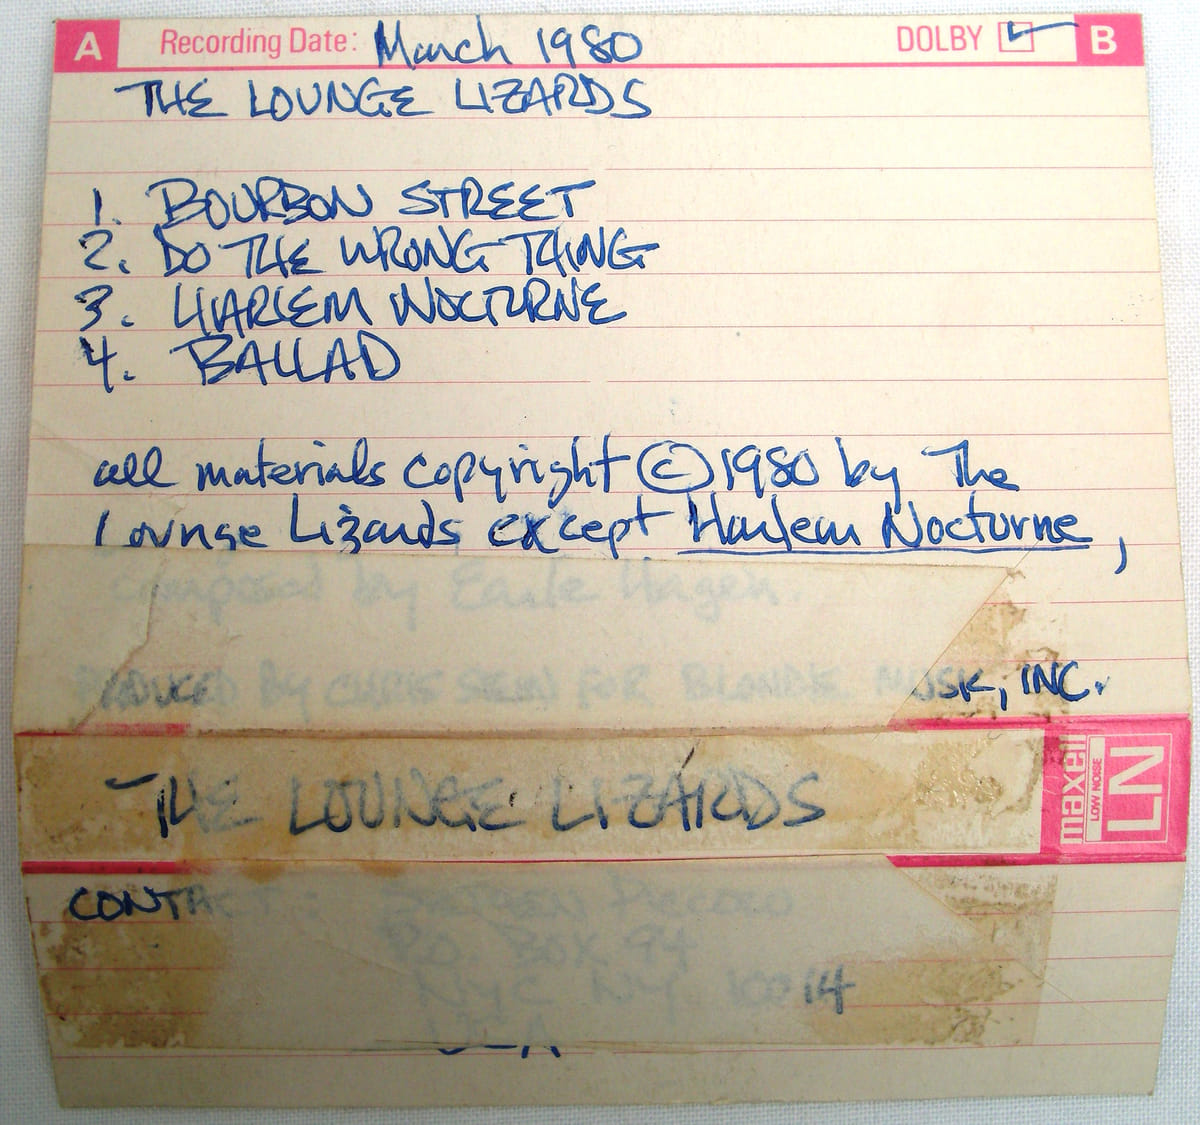 A Recording Date: March 1980 DOLBY B
THE LOUNGE LIZARDS
1. BOURBON STREET
2. DO THE WRONG THING
3. HARLEM NOCTURNE
4. BALLAD
all materials copyright © 1980 by The
Lounge Lizards except Harlem Nocturne,
composed by Earle Hagen.
PRODUCED BY CHRIS STEIN FOR BLONDIE MUSIK, INC.
THE LOUNGE LIZARDS
maxell
LOW NOISE
LN
CONTACT:
P.O. BOX 94
NYC NY 10014
USA